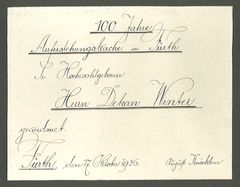 100 Jahre
Auferstehungskirche in Fürth
Sr. Hochwohlgeboren
Herrn Dekan Winter
gewidmet.
Fürth, den 17. Oktober 1926. August